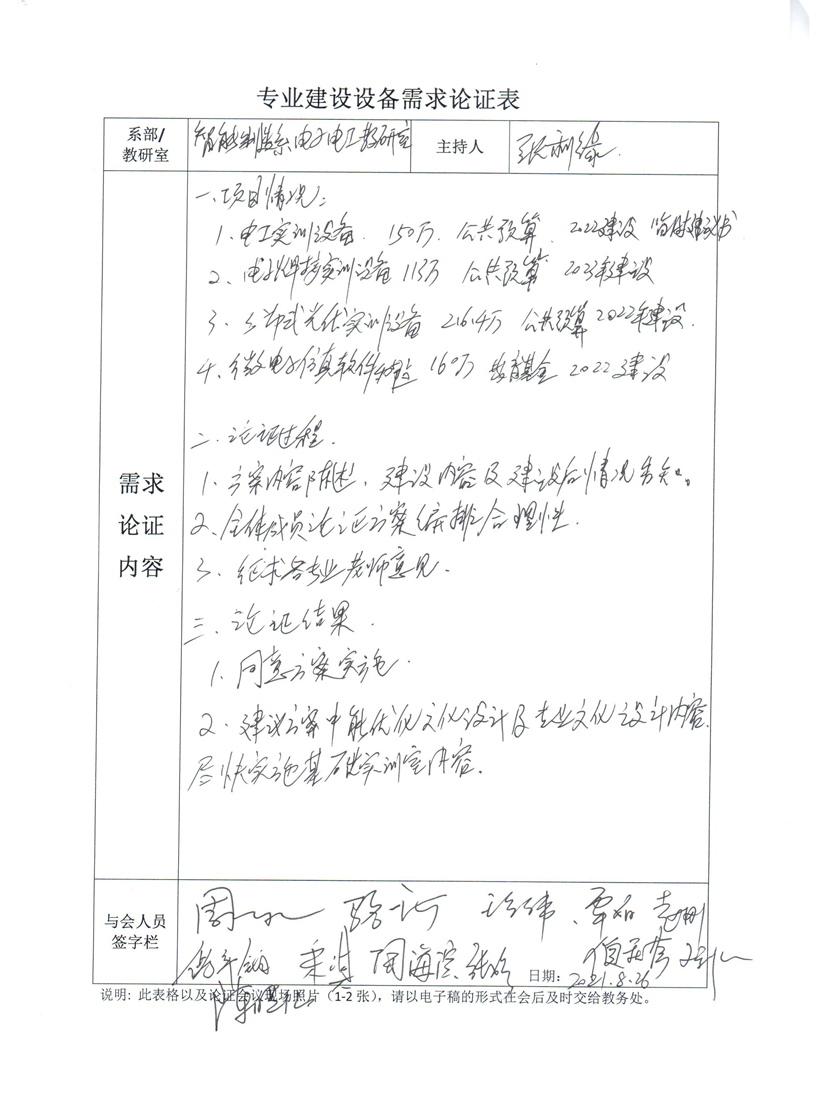 专业建设设备需求论证表
系部/
教研室
智能制造系电子电工教研室
主持人
张利缘
需求
论证
内容
一、项目情况：
1、电工实训设备. 150万. 公共预算. 2022建设
2、电子焊接实训设备 113万 公共预算 2023年建设
3、分布式光伏实训设备 216.4万 公共预算 2022年建设.
4、微电子仿真软件 160万 教育基金 2022建设
二、论证过程.
1、方案内容陈述、建设内容及建设后情况
2、全体成员论证方案编排合理性.
3、征求各专业老师意见.
三、论证结果.
1、同意方案实施.
2、建议方案中能优化文化设计及专业文化设计内容.
尽快实施基础实训室内容.
与会人员
签字栏
周海滨
日期：2021.8.26
说明: 此表格以及论证会议现场照片（1-2 张），请以电子稿的形式在会后及时交给教务处。